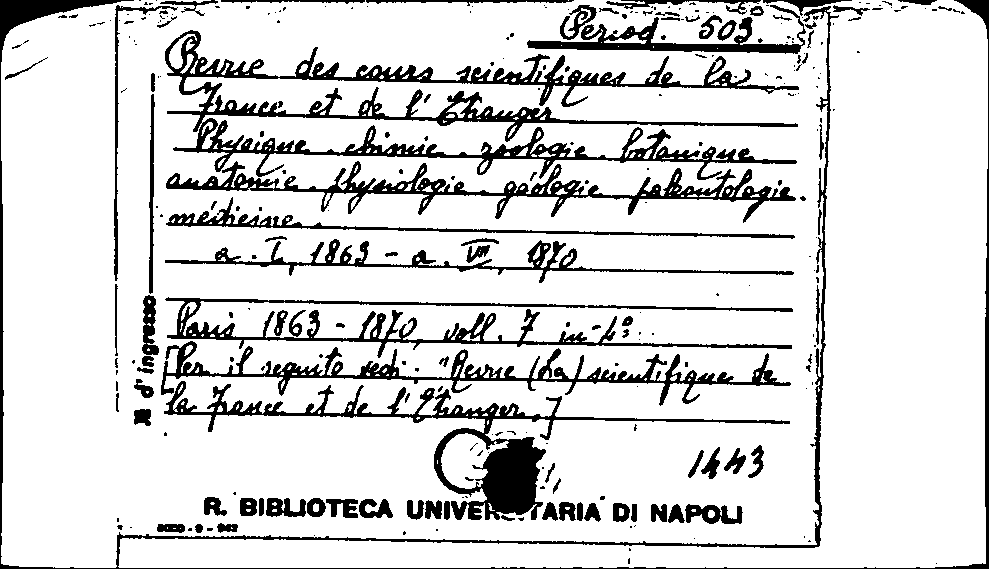 Period. 503.
Revue des cours scientifiques de la
France et de l'Etranger
Physique - chimie - zoologie - botanique
anatomie - physiologie - géologie - paleontologie -
médicine.
a. I, 1863 - a. VII, 1870
Paris, 1863 - 1870, voll. 7 in-4°
[Per il seguito vedi: "Revue (La) scientifique de
la France et de l'Etranger.]
1443
N d'ingresso
R. BIBLIOTECA UNIVERSITARIA DI NAPOLI